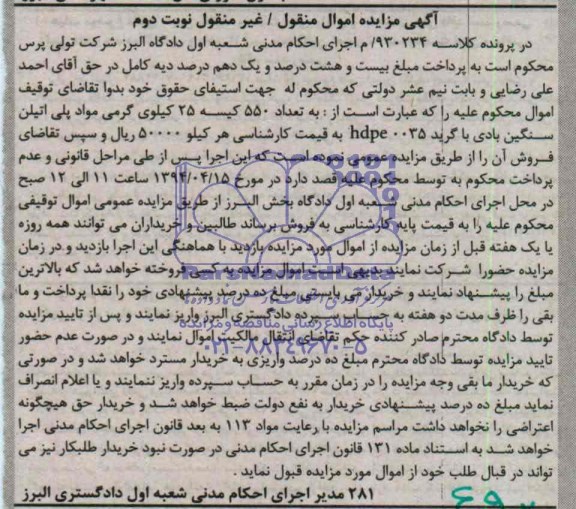 آگهی مزایده اموال منقول / غیر منقول نوبت دوم
در پرونده کلاسه ۹۳۰۲۳۴/ م اجرای احکام مدنی شعبه اول دادگاه البرز شرکت تولی پرس
محکوم است به پرداخت مبلغ بیست و هشت درصد و یک دهم درصد دیه کامل در حق آقای احمد
علی رضایی و بابت نیم عشر دولتی که محکوم له جهت استیفای حقوق خود بدوا تقاضای توقیف
اموال محکوم علیه را که عبارت است از : به تعداد ۵۵۰ کیسه ۲۵ کیلوی گرمی مواد پلی اتیلن
سنگین بادی با گرید ۰۰۳۵ hdpe به قیمت کارشناسی هر کیلو ۵۰۰۰۰ ریال و سپس تقاضای
فروش آن را از طریق مزایده عمومی نموده است که این اجرا پس از طی مراحل قانونی و عدم
پرداخت محکوم به توسط محکوم علیه قصد دارد در مورخ ۱۳۹۴/۰۴/۱۵ ساعت ۱۱ الی ۱۲ صبح
در محل اجرای احکام مدنی شعبه اول دادگاه بخش البرز از طریق مزایده عمومی اموال توقیفی
محکوم علیه را به قیمت پایه کارشناسی به فروش برساند طالبین و خریداران می توانند همه روزه
یا یک هفته قبل از زمان مزایده از اموال مورد مزایده بازدید با هماهنگی این اجرا بازدید و در زمان
مزایده حضورا شرکت نمایند بدیهی است اموال مزایده به کسی فروخته خواهد شد که بالاترین
مبلغ را پیشنهاد نمایند و خریدار می بایستی مبلغ ده درصد پیشنهادی خود را نقدا پرداخت و ما
بقی را ظرف مدت دو هفته به حساب سپرده دادگستری البرز واریز نمایند و پس از تایید مزایده
توسط دادگاه محترم صادر کننده حکم تقاضای انتقال مالکیت اموال نمایند و در صورت عدم حضور
تایید مزایده توسط دادگاه محترم مبلغ ده درصد واریزی به خریدار مسترد خواهد شد و در صورتی
که خریدار ما بقی وجه مزایده را در زمان مقرر به حساب سپرده واریز ننمایند و یا اعلام انصراف
نماید مبلغ ده درصد پیشنهادی خریدار به نفع دولت ضبط خواهد شد و خریدار حق هیچگونه
اعتراضی را نخواهد داشت مراسم مزایده با رعایت مواد ۱۱۳ به بعد قانون اجرای احکام مدنی اجرا
خواهد شد به استناد ماده ۱۳۱ قانون اجرای احکام مدنی در صورت نبود خریدار طلبکار نیز می
تواند در قبال طلب خود از اموال مورد مزایده قبول نماید .
۲۸۱ مدیر اجرای احکام مدنی شعبه اول دادگستری البرز
پایگاه اطلاع رسانی مناقصه و مزایده
۰۲۱-۸۸۳۴۹۶۷۰-۵